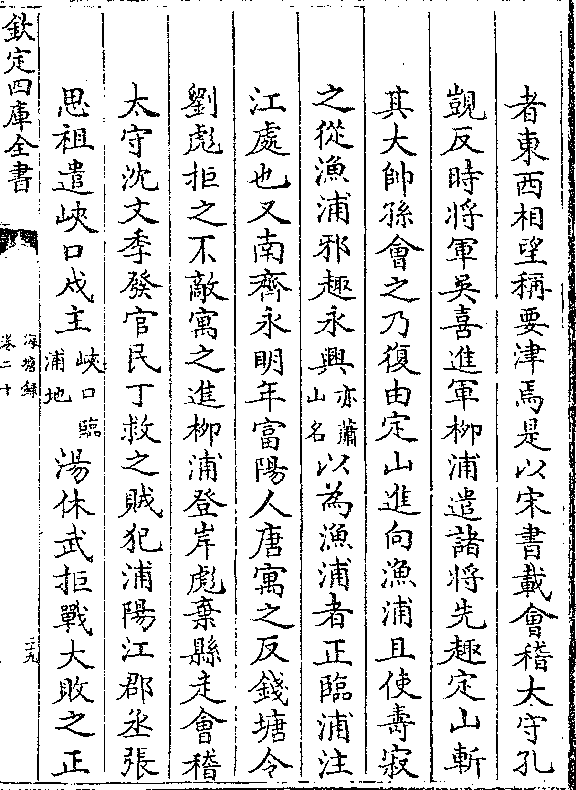 者東西相望稱要津焉是以宋書載會稽太守孔
覬反時將軍吳喜進軍柳浦遣諸將先趣定山斬
其大帥孫會之乃復由定山進向漁浦且使壽寂
之從漁浦邪趣永興亦蕭山名以為漁浦者正臨浦注
江處也又南齊永明年富陽人唐寓之反錢塘令
劉彪拒之不敵寓之進柳浦登岸彪棄縣走會稽
太守沈文季發官民丁救之賊犯浦陽江郡丞張
思祖遣峽口戍主峽口臨浦地湯休武拒戰大敗之正
欽定四庫全書
海塘録
卷二十
二九